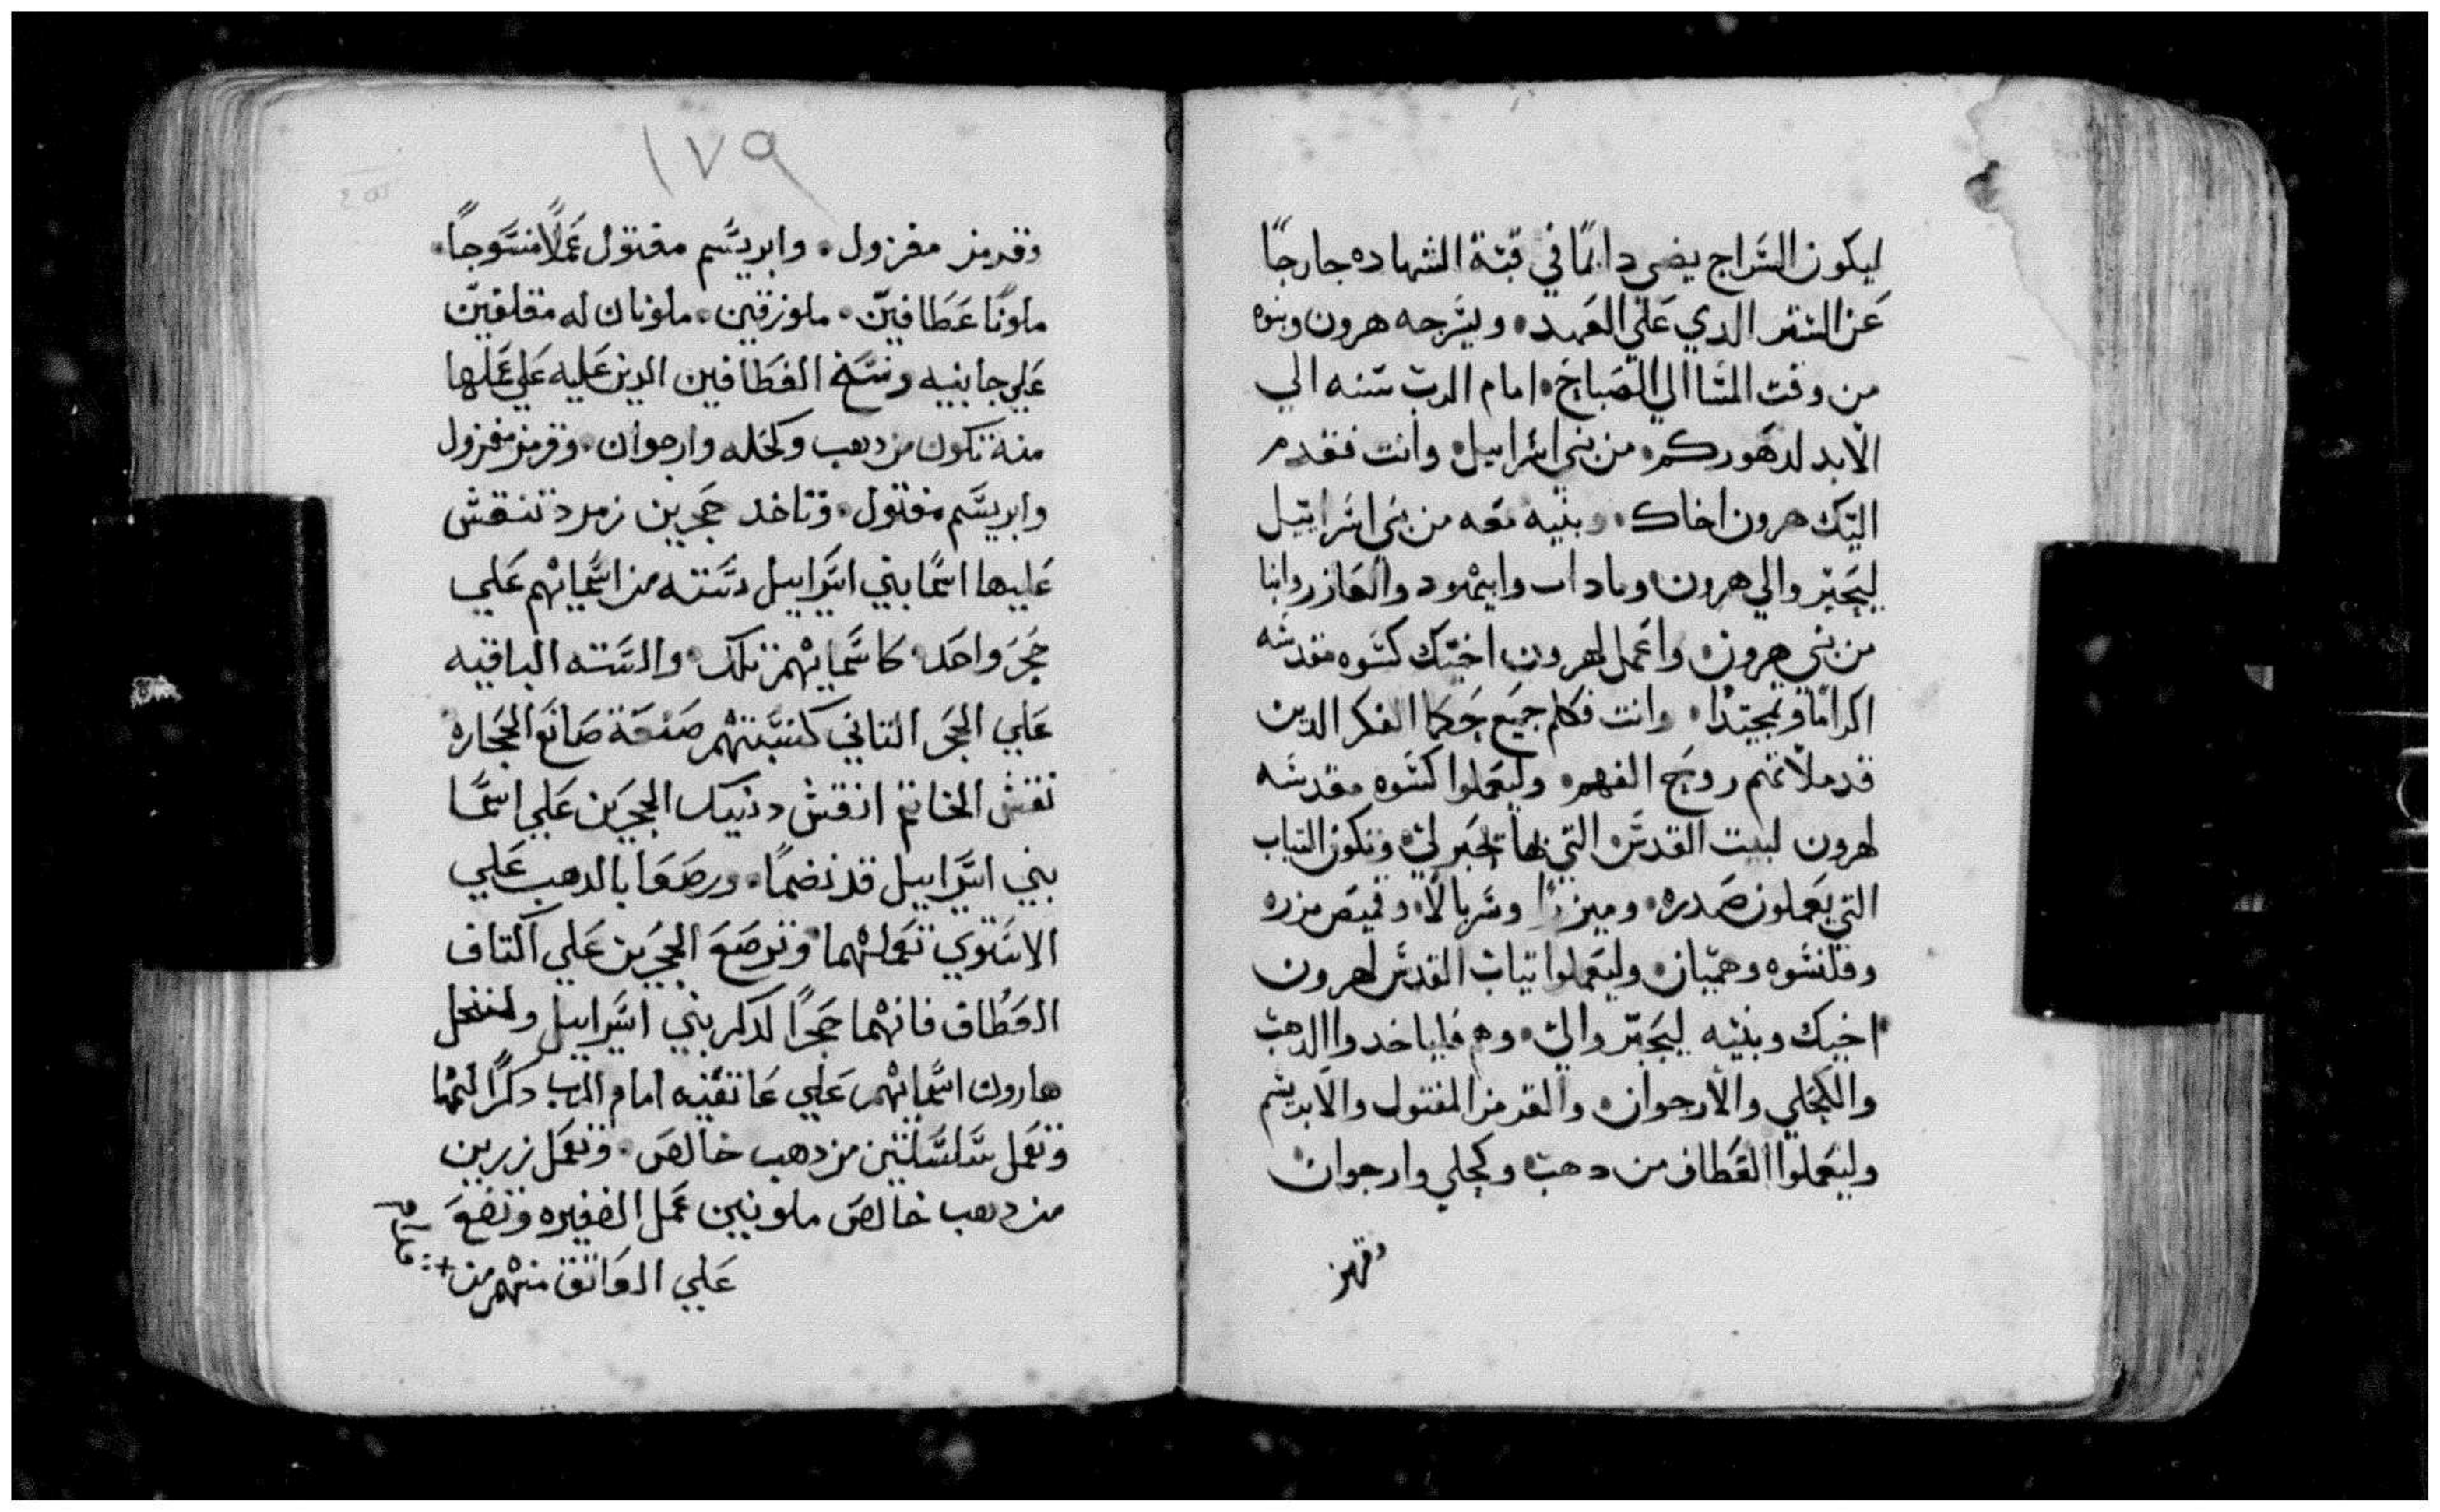 ليكون السراج يضي دايمًا في قبة الشهاده جارجًا
عن الستر الدي علي العهد ويسرجه هرون وبنوه
من وقت المسا الي الصباح امام الرب سنه الي
الابد لدهوركم من بني اسراييل وانت فقدم
اليك هرون اخاك وبنيه معه من بني اسراييل
ليجبروا لي هرون وناداب وابيهود والعازر وابنا
من بني هرون واعمل لهرون اخيك كسوه مقدسه
اكرامًا وتمجيدًا وانت فكلم جميع حكما الفكر الدين
قد ملاتهم روح الفهم وليعملوا كسوه مقدسه
لهرون لبيت القدس التي بها يحبر لي وتكون التياب
التي يعملون صدره وميزرًا وسربالًا وقميص مزره
وقلنسوه وهميان وليعملوا تياب القدس لهرون
اخيك وبنيه ليجبروا لي وهم فلياخدوا الدهب
والكحلي والارجوان والقرمز المفتول والابريسم
وليعملوا العطاف من دهب وكحلي وارجوان
وقرمز
١٧٩
وقرمز مغزول وابريسم مفتول عملًا منسوجًا
ملونًا عطافين ملوزقين ملونان له مقلفين
علي جانبيه ونسخ العطافين الدين عليه علي عملها
منه تكون من دهب وكحله وارجوان وقرمز مغزول
وابريسم مفتول وتاخد حجرين زمرد تنقش
عليها اسما بني اسراييل سته من اسمايهم علي
حجر واحد كاسمايهم تلك والسته الباقيه
علي الحجر التاني كنسبتهم صنعة صانع الحجاره
نقش الخاتم انقش دنيك الحجرين علي اسما
بني اسراييل قد نضما ورصعا بالدهب علي
الاستوي تعملهما وترصع الحجرين علي اكتاف
العطاف فانهما حجرًا لدكر بني اسراييل وليحمل
هارون اسمايهم علي عاتقيه امام الرب دكرًا لهما
وتعمل سلسلتين من دهب خالص وتعمل زرين
من دهب خالص ملونين عمل الضفيره وتضع
علي العواتق منهم من